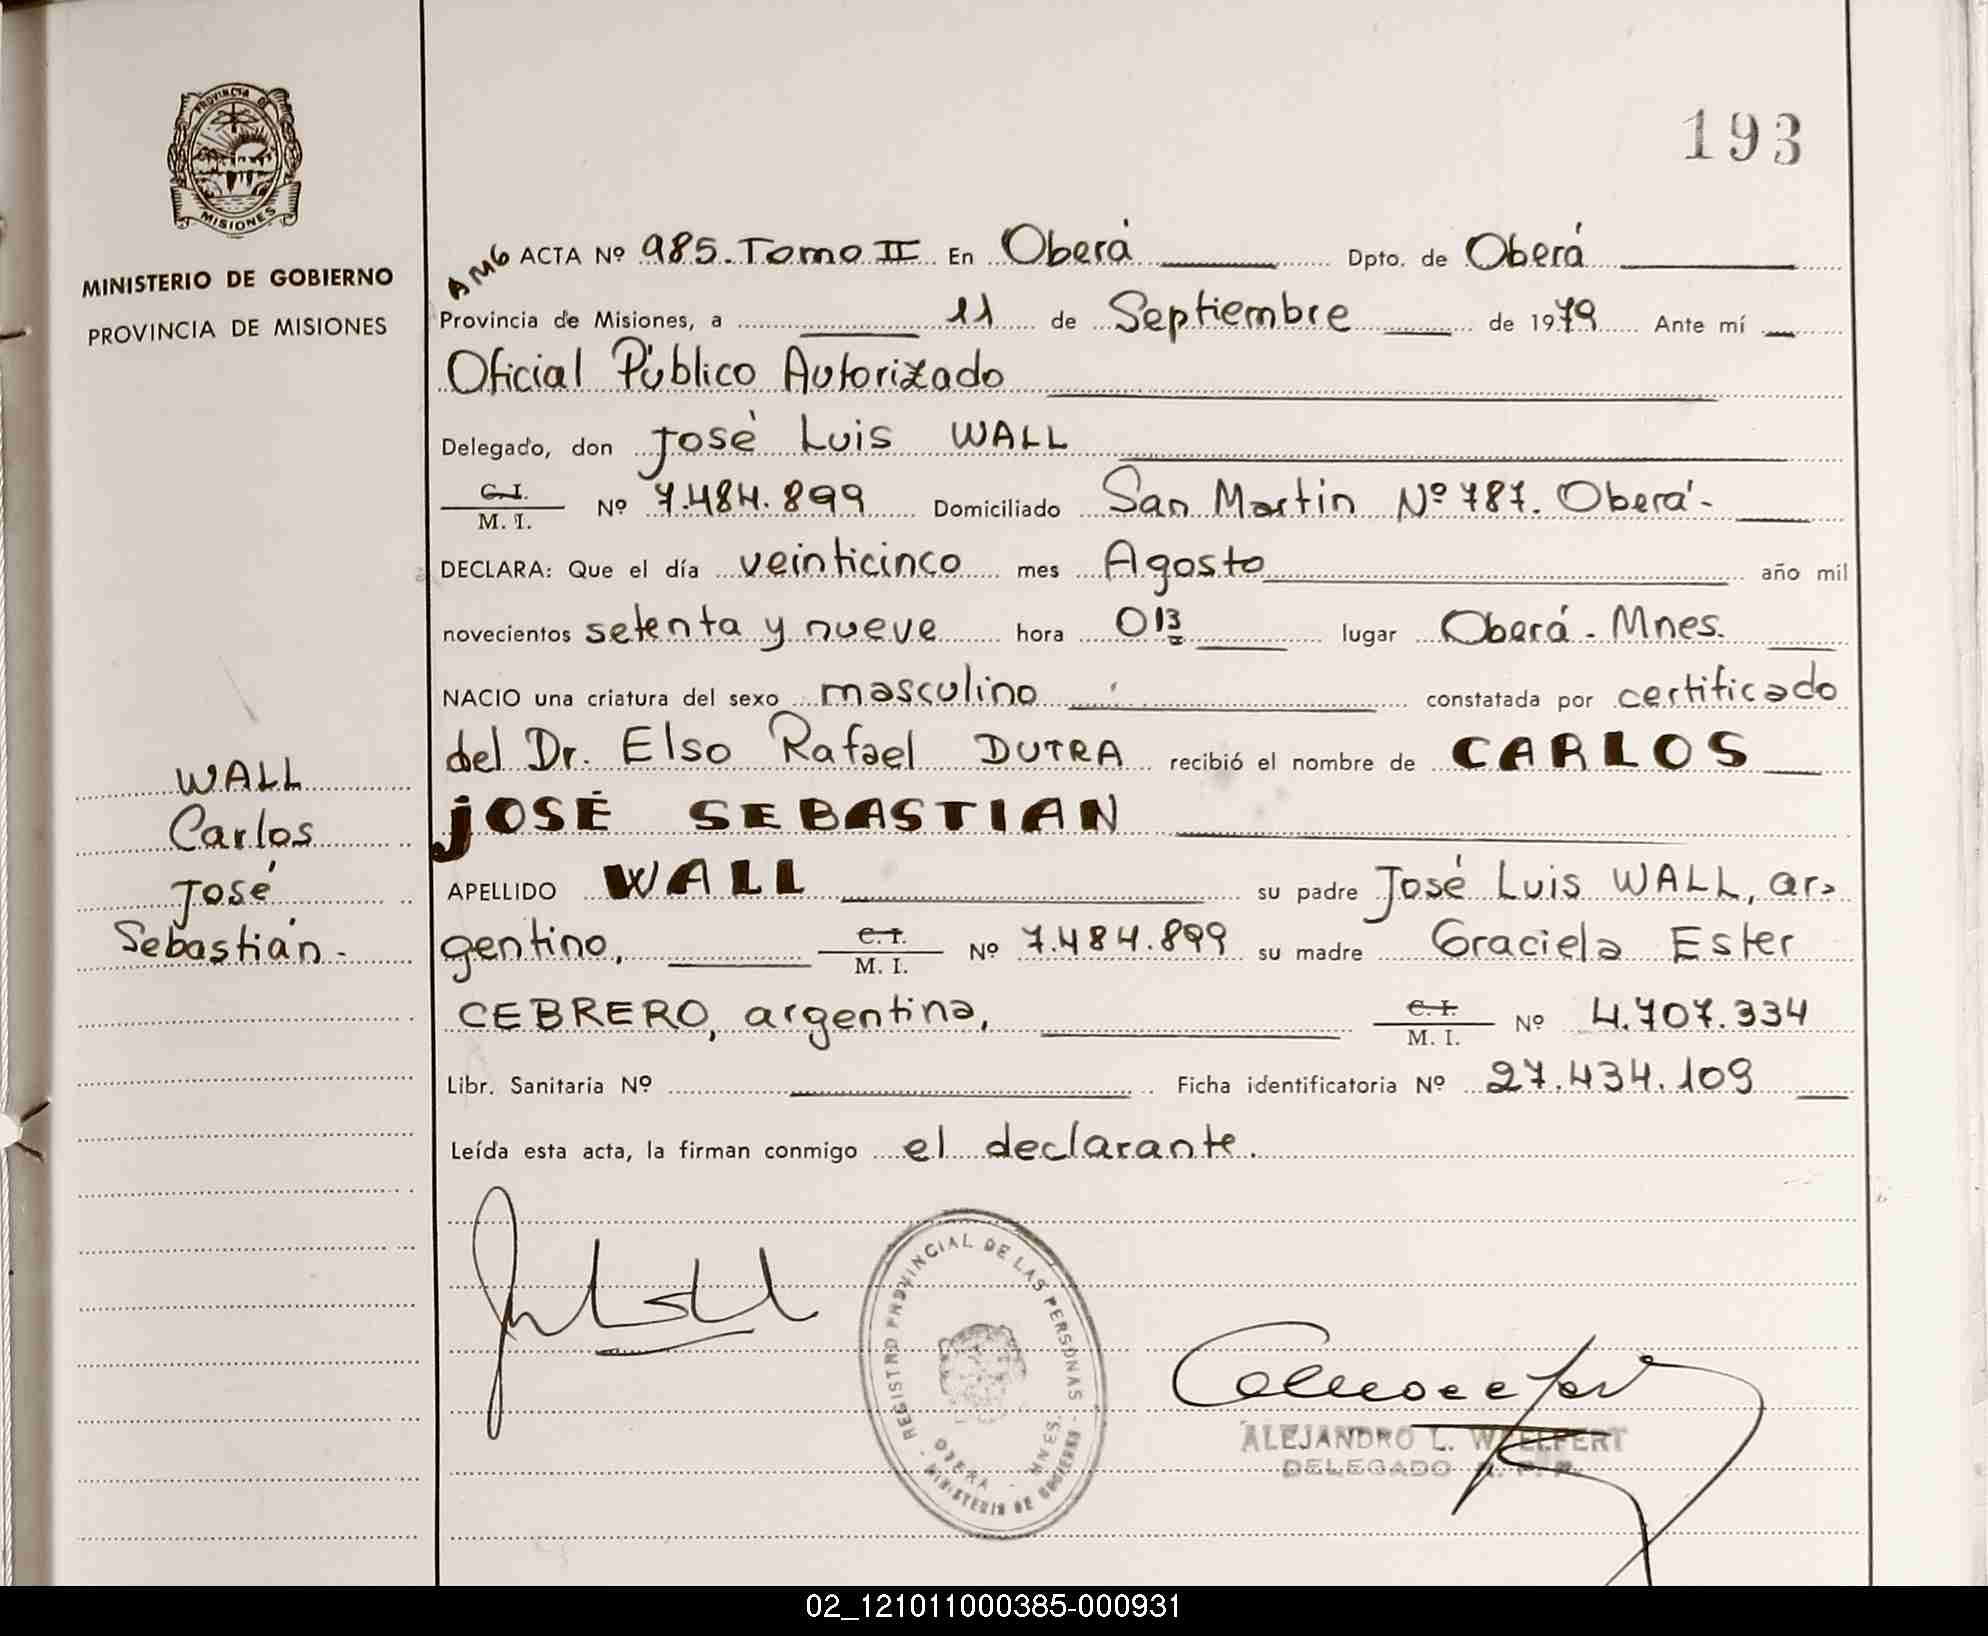 193
PROVINCIA DE
MISIONES
MINISTERIO DE GOBIERNO
PROVINCIA DE MISIONES
WALL
Carlos
José
Sebastián.-
AMG ACTA Nº 985. Tomo II En Oberá Dpto. de Oberá
Provincia de Misiones, a 11 de Septiembre de 1979 Ante mí
Oficial Público Autorizado
Delegado, don José Luis WALL
C. I.
M. I. Nº 7.484.899 Domiciliado San Martin Nº 787. Oberá.-
DECLARA: Que el día veinticinco mes Agosto año mil
novecientos setenta y nueve hora 013 lugar Oberá. Mnes.
NACIO una criatura del sexo masculino constatada por certificado
del Dr. Elso Rafael DUTRA recibió el nombre de CARLOS
JOSÉ SEBASTIAN
APELLIDO WALL su padre José Luis WALL, ar-
gentino, C. I.
M. I. Nº 7.484.899 su madre Graciela Ester
CEBRERO, argentina, C. I.
M. I. Nº 4.707.334
Libr. Sanitaria Nº Ficha identificatoria Nº 27.434.109
Leída esta acta, la firman conmigo el declarante.
REGISTRO PROVINCIAL DE LAS PERSONAS
OBERA - MNES.
MINISTERIO DE GOBIERNO
ALEJANDRO L. WELFERT
DELEGADO R. P. P.
02_121011000385-000931